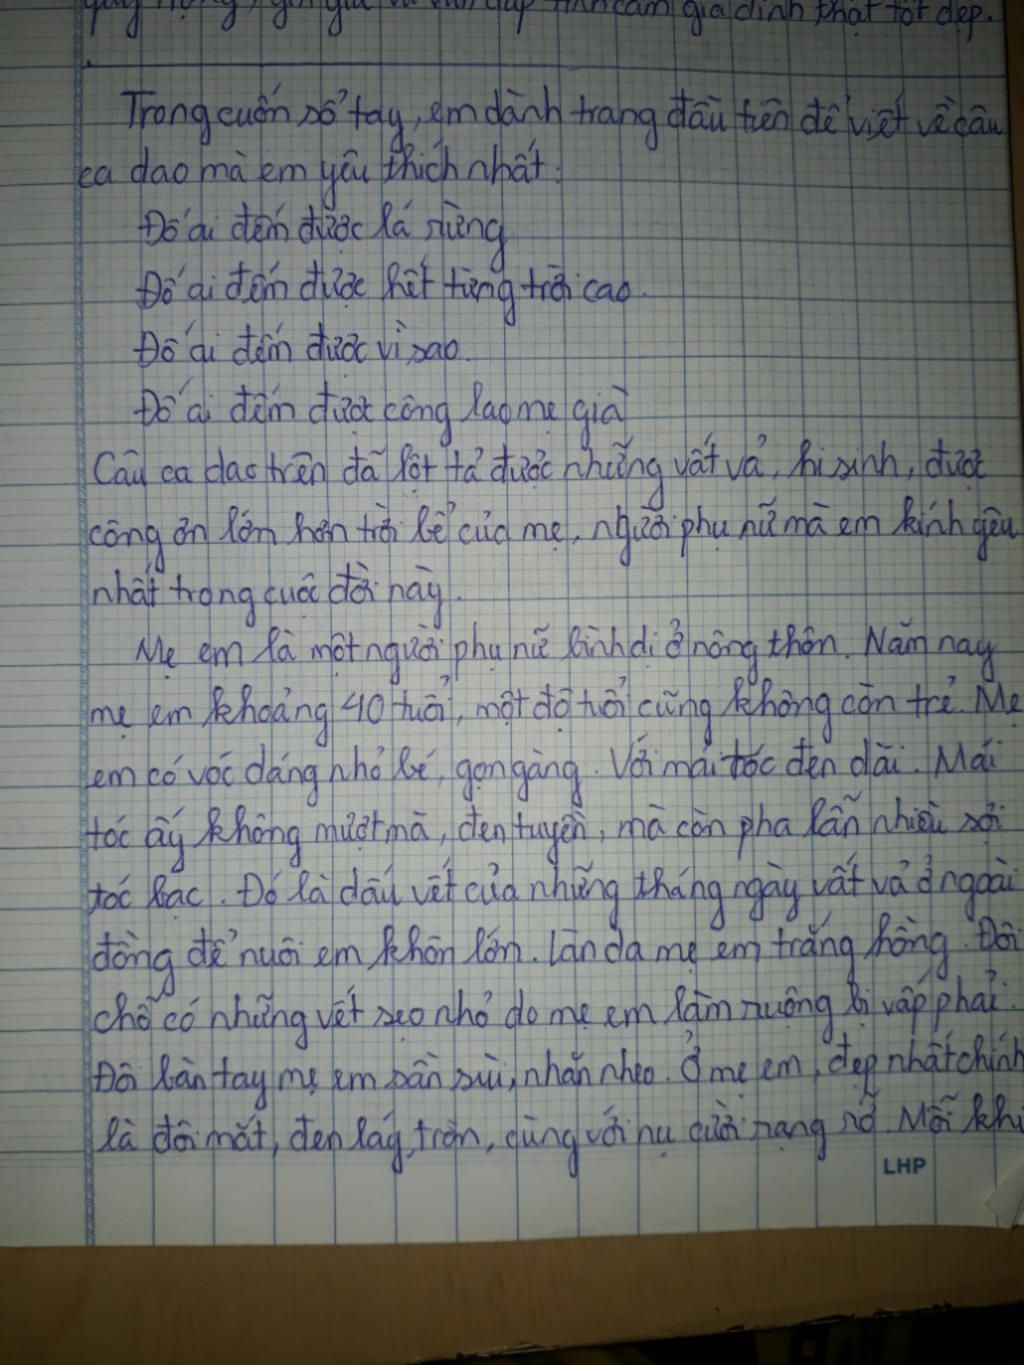 gia đình thật tốt đẹp.
Trong cuốn sổ tay, em dành trang đầu tiên để viết về câu
ca dao mà em yêu thích nhất:
Đố ai đếm được lá rừng
Đố ai đếm được hết từng trời cao.
Đố ai đếm được vì sao.
Đố ai đếm được công lao mẹ già
Câu ca dao trên đã lột tả được những vất vả, hi sinh, được
công ơn lớn hơn trời bể của mẹ, người phụ nữ mà em kính yêu
nhất trong cuộc đời này.
Mẹ em là một người phụ nữ bình dị ở nông thôn. Năm nay
mẹ em khoảng 40 tuổi, một độ tuổi cũng không còn trẻ. Mẹ
em có vóc dáng nhỏ bé, gọn gàng. Với mái tóc đen dài. Mái
tóc ấy không mượt mà, đen tuyền, mà còn pha lẫn nhiều sợi
tóc bạc. Đó là dấu vết của những tháng ngày vất vả ở ngoài
đồng để nuôi em khôn lớn. Làn da mẹ em trắng hồng. Đôi
chỗ có những vết sẹo nhỏ do mẹ em làm ruộng bị vấp phải.
Đôi bàn tay mẹ em sần sùi, nhăn nheo. Ở mẹ em, đẹp nhất chính
là đôi mắt, đen láy, tròn, cùng với nụ cười rạng rỡ. Mỗi khi
LHP